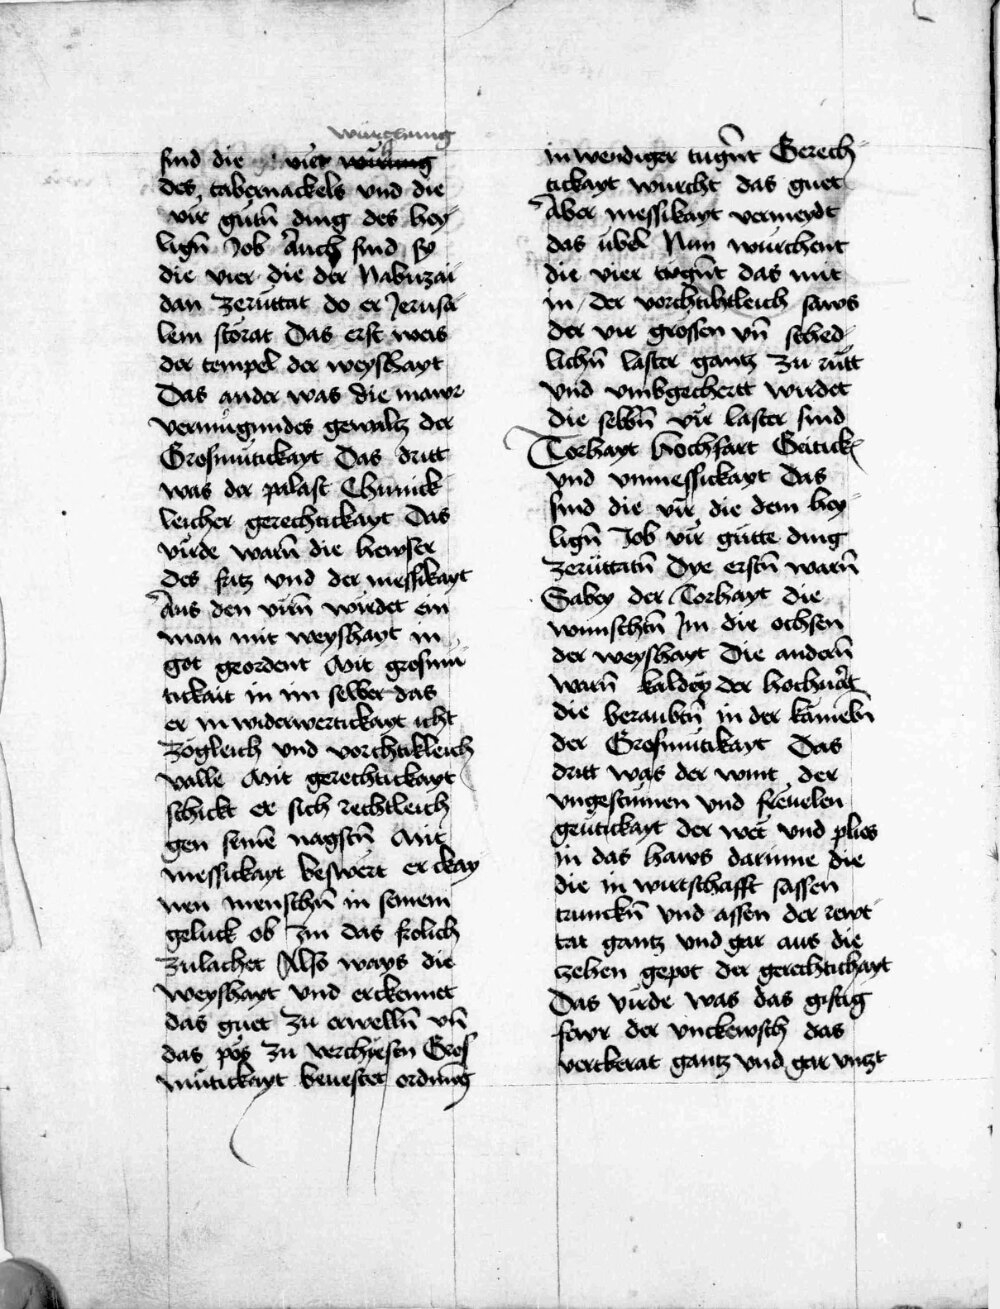 würchung
sind die vier würung
des tabernackels vnd die
vir gutn̄ ding des hey-
lign̄ Job Auch sind sy
die vier die der Nabuzar-
dan zeruttat do er Jerusa-
lem storat Das erst was
der tempel der weyshayt
Das ander was die mawr
vermugundes gewaltz der
Grosmutickayt Das dritt
was der palast Chunick-
leicher gerechtickayt Das
virde warn̄ die hewser
des fritz vnd der messikayt
Aus den virn̄ wirdet ein
man mit weyshayt in
got geordent Mit grosmu-
tickait in im selber das
er in widerwertickayt icht
zogleich vnd vorchtikleich
valle Mit gerechtickayt
schickt er sich rechtleich
gen seinē nagstn̄ Mit
messickayt beswert er ckay-
nen menschn̄ in seinem
geluck ob im das frolich
zulachet Also ways die
weyshayt vnd erckennet
das guet zu erwelln̄ vn̄
das pös zu verchiesen Gros-
mütickayt beuestet ordnūg
inwendiger tugn̄t Gerech-
tickayt wurcht das guet
Aber messikayt vermeydt
das übel Nun würchent
die vier tugn̄t das mit
in der vorchtikleich saws
der vir grossen vn̄ sched-
lichn̄ laster gantz zu rütt
vnd vmbgechertt wirdet
die selbn̄ vir laster sind
Torhayt Hochfart Geitick-
vnd vnmessickayt Das
sind die vir die dem hey-
lign̄ Job vir gütte ding
zerüttatn̄ Dye erstn̄ warn̄
Sabey der Torhayt die
wunschtn̄ Im die ochsen
der weyshayt Die andern̄
warn̄ kaldey der hochuart
die beraubtn̄ in der kameln̄
der Grosmütikayt Das
dritt was der wint der
vngestümen vnd freuelen
geitickayt der wet vnd plies
in das haws darinne die
die in wirtschafft sassen
trunckn̄ vnd assen der rewt-
tat gantz vnd gar aus die
zehen gepot der gerechtichayt
Das virde was das giftig
fewr der vnckewsch das
verckerat gantz vnd gar vntzt